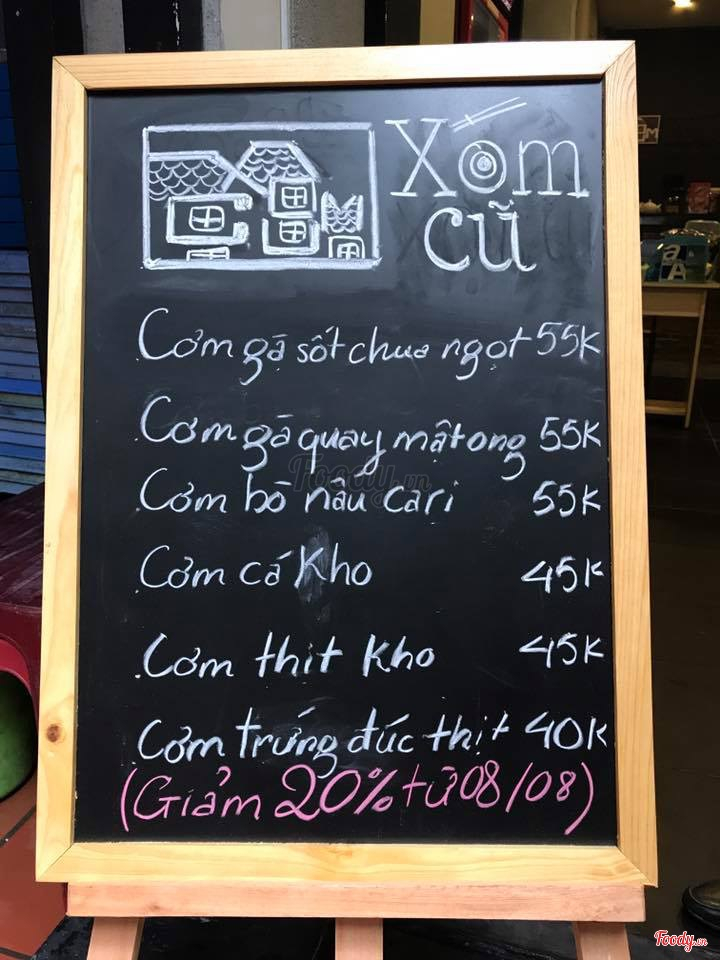 Xóm
cũ
Cơm gà sốt chua ngọt 55K
Cơm gà quay mật ong 55K
Foody.vn
Cơm bò nấu cari 55K
Cơm cá kho 45K
Cơm thịt kho 45K
Cơm trứng đúc thịt 40K
(Giảm 20% từ 08/08)
Foody.vn